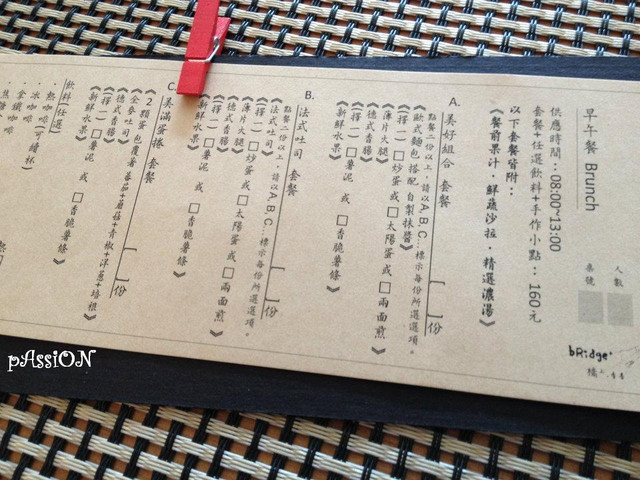 早午餐 Brunch
人數
桌號
供應時間：08:00~13:00
套餐+任選飲料+手作小點：160元
以下套餐皆附：
《餐前果汁．鮮蔬沙拉．精選濃湯》
bRidge
橋
A. 美好組合 套餐 份
點餐二份以上，請以A,B,C...標示每份所選選項。
《歐式麵包搭配 自製抹醬》
《薄片火腿》
《德式香腸》
《擇一 □炒蛋或□太陽蛋或□兩面煎》
《擇一 □薯泥 或 □香脆薯條》
《新鮮水果》
B. 法式吐司 套餐 份
點餐二份以上，請以A,B,C...標示每份所選選項。
《法式吐司》
《薄片火腿》
《德式香腸》
《擇一 □炒蛋或□太陽蛋或□兩面煎》
《擇一 □薯泥 或 □香脆薯條》
《新鮮水果》
C. 美滿蛋捲 套餐 份
《2顆蛋包覆著蕃茄+蘑菇+青椒+洋蔥+培根》
《全麥吐司》
《德式香腸》
《擇一 □薯泥 或 □香脆薯條》
《新鮮水果》
飲料(任選)
．熱咖啡(可續杯)
．冰咖啡
．拿鐵咖啡
pAssiON